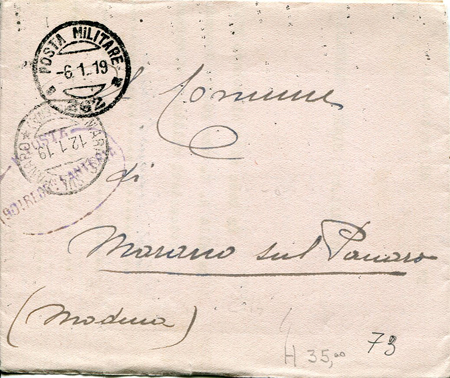 POSTA MILITARE
-6.1.19
262
Al Comune
12.1.19
di
Marano sul Panaro
(Modena)
H 35,00
73